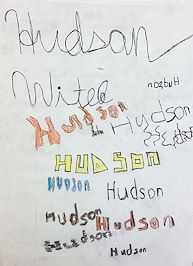 Hudson
Hudson
Witek
Hudson
Hudson
HUDSON
HUDSON
Hudson
Hudson
Hudson
Hudson
Hudson